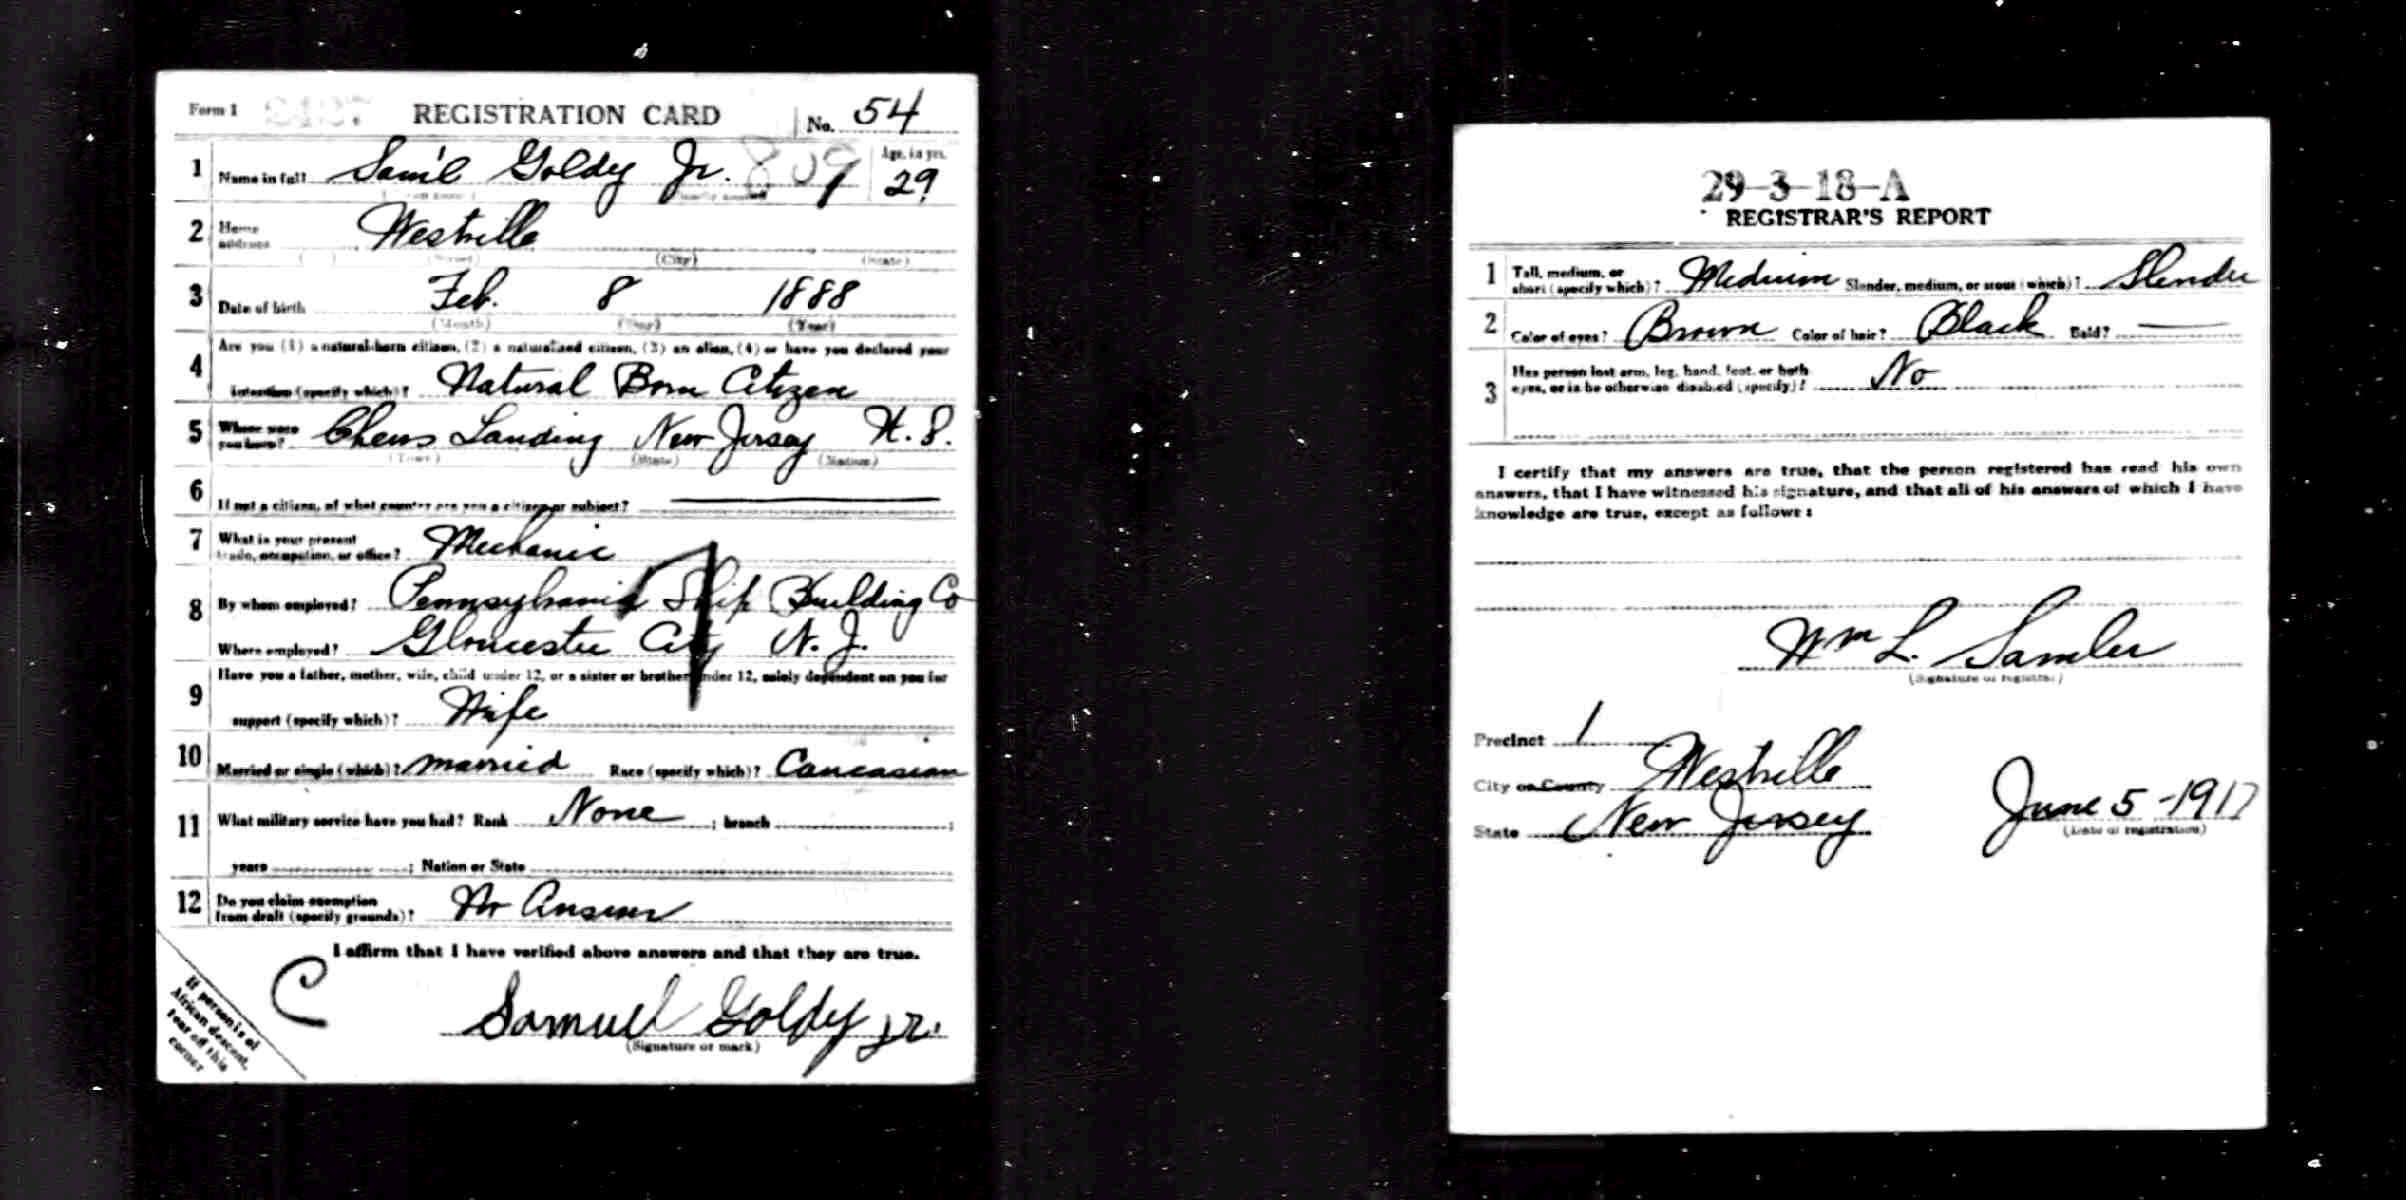 Form 1 REGISTRATION CARD No. 54
1 Name in full Sam'l Goldy Jr. 809 Age, in yrs. 29
2 Home address Westville
(Street) (City) (State)
3 Date of birth Feb. 8 1888
(Month) (Day) (Year)
4 Are you (1) a natural-born citizen, (2) a naturalized citizen, (3) an alien, (4) or have you declared your
intention (specify which)? Natural Born Citizen
5 Where were you born? Chews Landing New Jersey U.S.
(Town) (State) (Nation)
6 If not a citizen, of what country are you a citizen or subject?
7 What is your present trade, occupation, or office? Mechanic
8 By whom employed? Pennsylvania Ship Building Co
Where employed? Gloucester City N. J.
9 Have you a father, mother, wife, child under 12, or a sister or brother under 12, solely dependent on you for
support (specify which)? Wife
10 Married or single (which)? married Race (specify which)? Caucasian
11 What military service have you had? Rank None ; branch ;
years ; Nation or State
12 Do you claim exemption from draft (specify grounds)? No Answer
I affirm that I have verified above answers and that they are true.
C
Samuel Goldy Jr.
(Signature or mark)
If person is of
African descent,
tear off this
corner
29-3-18-A
REGISTRAR'S REPORT
1 Tall, medium, or short (specify which)? Medium Slender, medium, or stout (which)? Slender
2 Color of eyes? Brown Color of hair? Black Bald?
3 Has person lost arm, leg, hand, foot, or both
eyes, or is he otherwise disabled (specify)? No
I certify that my answers are true, that the person registered has read his own
answers, that I have witnessed his signature, and that all of his answers of which I have
knowledge are true, except as follows:
Wm L. Samler
(Signature of registrar)
Precinct 1
City or County Westville
State New Jersey
June 5 - 1917
(Date of registration)